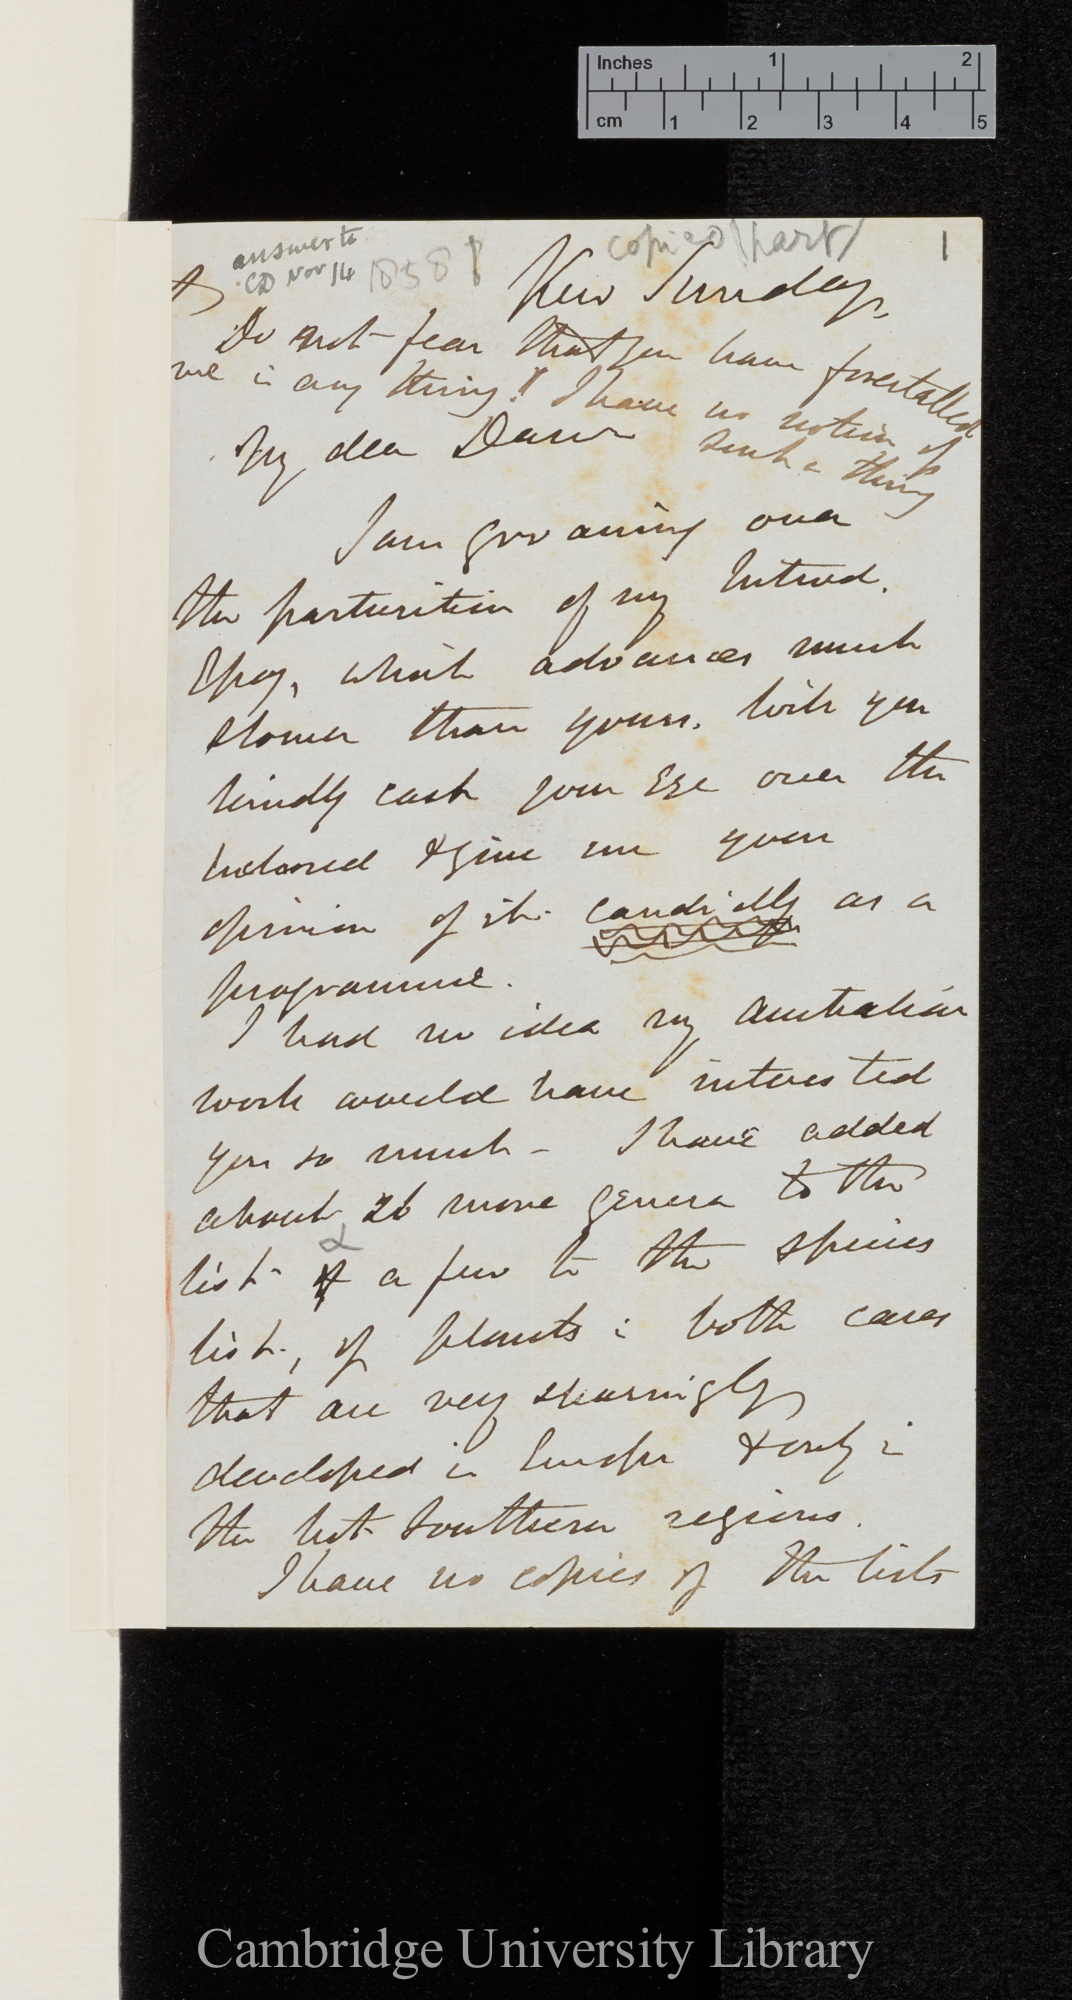 Inches 1 2
cm 1 2 3 4 5
answer to
CD Nov 14
1858?
copied (part)
1
Kew Sunday.
Do not fear that you have forestalled
me in any thing! I have no notion of
such a thing
My dear Darwin
I am groaning over
the parturition of my Introd.
Essay, which advances much
slower than yours. Will you
kindly cast your Eye over the
inclosed & give me your
opinion of it candidly as a
programme.
I had no idea my Australian
work would have interested
you so much — I have added
about 26 more genera to the
list & a few to the species
list, of plants in both cases
that are very sparingly
developed in Europe & only in
the hot Southern regions.
I have no copies of the lists
Cambridge University Library